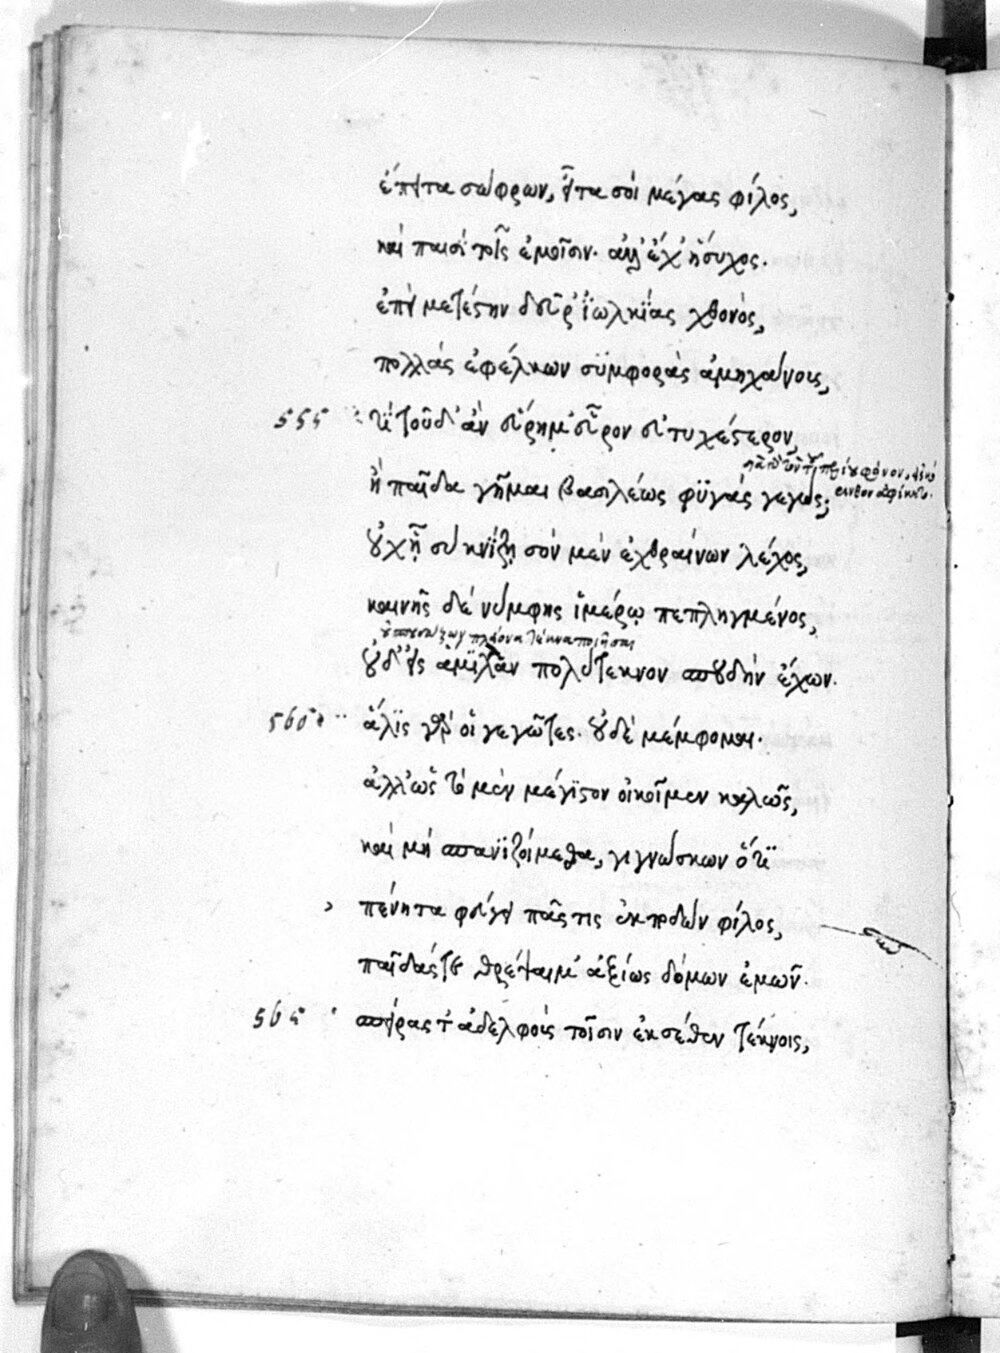 ἔπειτα σώφρων, εἶτα σοὶ μέγας φίλος,
καὶ παισὶ τοῖς ἐμοῖσιν· ἀλλ' ἔχ' ἥσυχος·
ἐπεὶ μετέστην δεῦρ' ἰωλκίας χθονὸς,
πολλὰς ἐφέλκων συμφορὰς ἀμηχάνους,
555 τί τοῦδ' ἂν εὕρημ' εὗρον εὐτυχέστερον,
ἢ παῖδα γῆμαι βασιλέως φυγὰς γεγώς;
οὐχ ᾗ σὺ κνίζῃ σὸν μὲν ἐχθραίνων λέχος,
καινῆς δὲ νύμφης ἱμέρῳ πεπληγμένος,
πλείονα τέκνα ποιῆσαι
οὐδ' εἰς ἅμιλλαν πολύτεκνον σπουδὴν ἔχων·
560 ἅλις γὰρ οἱ γεγῶτες· οὐδὲ μέμφομαι·
ἀλλ' ὡς τὸ μὲν μέγιστον οἰκοῖμεν καλῶς,
καὶ μὴ σπανιζοίμεθα, γιγνώσκων ὅτι
πένητα φεύγει πᾶς τις ἐκποδὼν φίλος,
παῖδάς τε θρέψαιμ' ἀξίως δόμων ἐμῶν·
565 σπείρας τ' ἀδελφοὺς τοῖσιν ἐκ σέθεν τέκνοις,